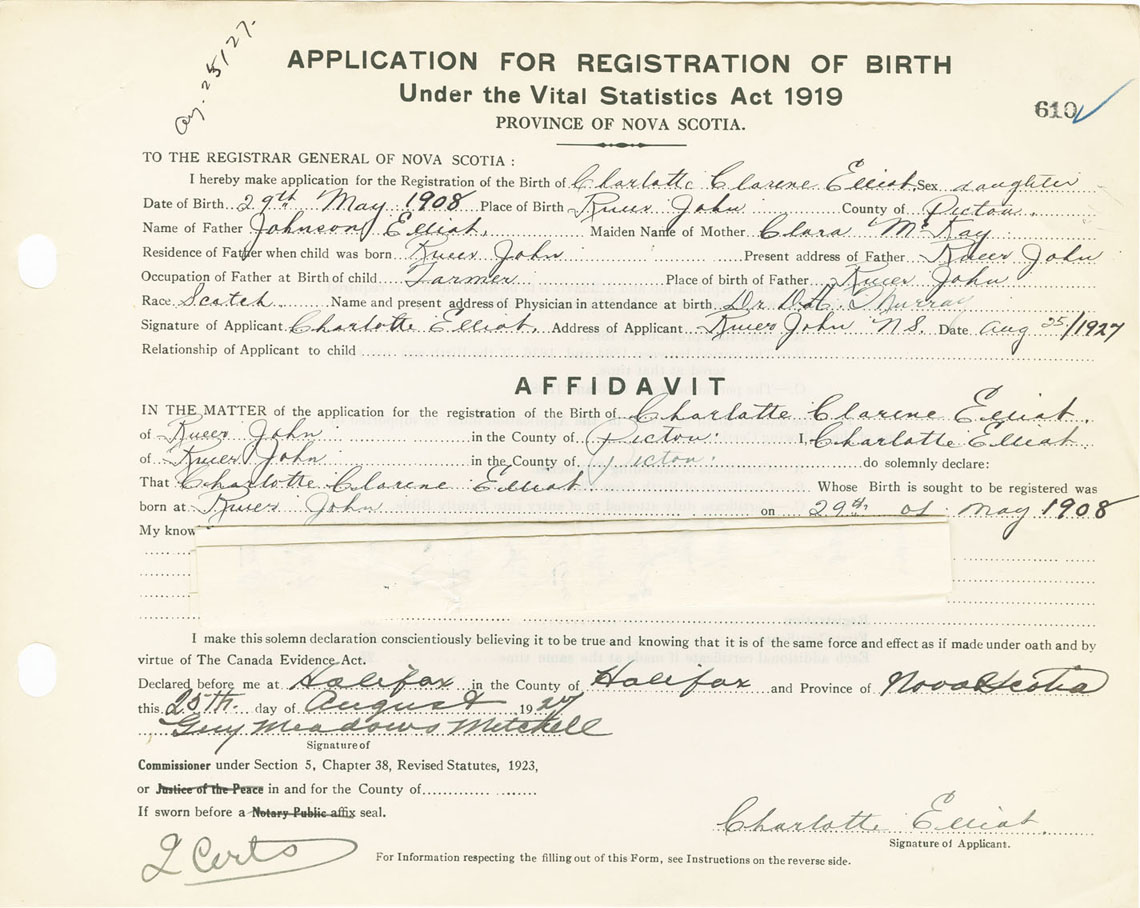 Aug. 25/27.
APPLICATION FOR REGISTRATION OF BIRTH
Under the Vital Statistics Act 1919
610
PROVINCE OF NOVA SCOTIA.
TO THE REGISTRAR GENERAL OF NOVA SCOTIA :
I hereby make application for the Registration of the Birth of Charlotte Clarene Elliot Sex daughter
Date of Birth 29th May 1908 Place of Birth River John County of Pictou.
Name of Father Johnson Elliot. Maiden Name of Mother Clara McKay
Residence of Father when child was born River John Present address of Father River John
Occupation of Father at Birth of child Farmer Place of birth of Father River John
Race Scotch Name and present address of Physician in attendance at birth Dr Murray
Signature of Applicant Charlotte Elliot. Address of Applicant River John N.S. Date Aug 25/1927
Relationship of Applicant to child
AFFIDAVIT
IN THE MATTER of the application for the registration of the Birth of Charlotte Clarene Elliot
of River John in the County of Pictou. I, Charlotte Elliot
of River John in the County of Pictou. do solemnly declare:
That Charlotte Clarene Elliot Whose Birth is sought to be registered was
born at River John on 29th of May 1908
My know
I make this solemn declaration conscientiously believing it to be true and knowing that it is of the same force and effect as if made under oath and by
virtue of The Canada Evidence Act.
Declared before me at Halifax in the County of Halifax and Province of Nova Scotia
this 25th day of August 1927
Guy Meadows Mitchell
Signature of
Commissioner under Section 5, Chapter 38, Revised Statutes, 1923,
or Justice of the Peace in and for the County of
If sworn before a Notary Public affix seal.
Charlotte Elliot.
Signature of Applicant.
2 Certs
For Information respecting the filling out of this Form, see Instructions on the reverse side.